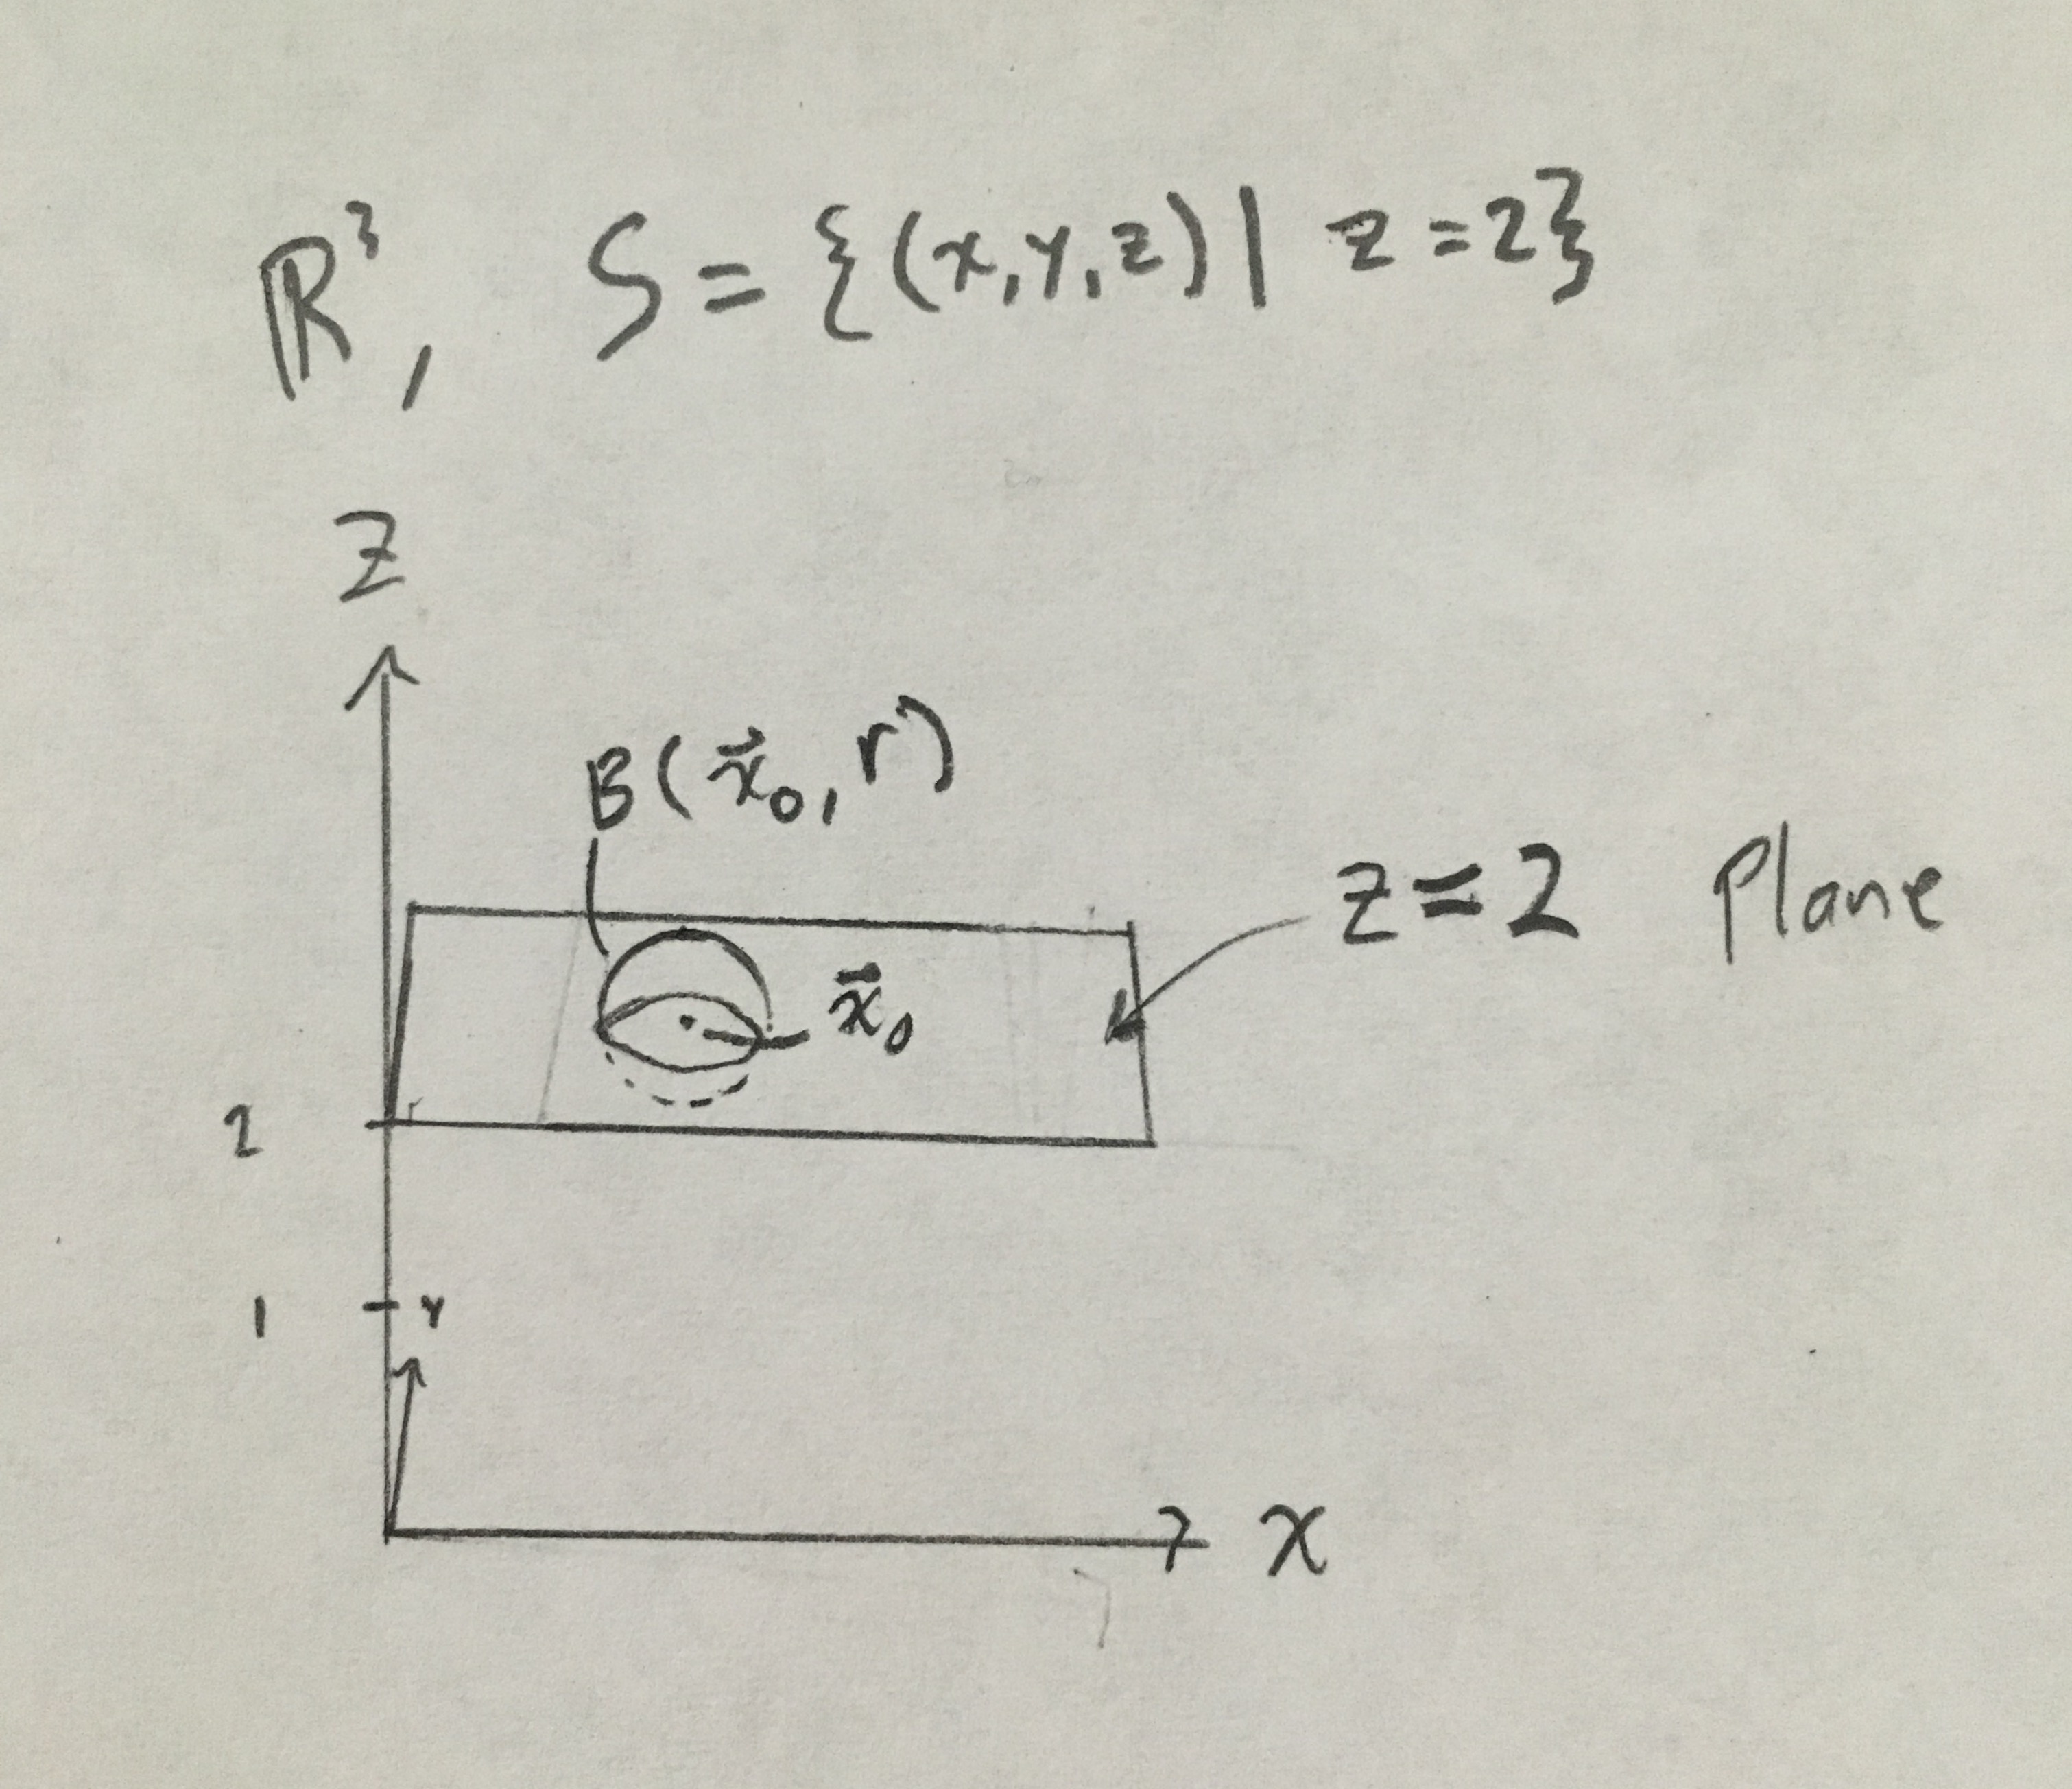 ℝ³, S = {(x,y,z) | z = 2}
z
B(x⃗₀, r)
z = 2 Plane
x⃗₀
2
1 y
x